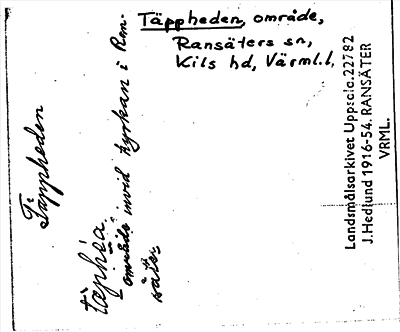 Täppheden, område,
Ransäters sn,
Kils hd, Värml. l.
Täppheden
tæphéa.
område invid kyrkan i Ran-
säter
Landsmålsarkivet Uppsala 22782
J. Hedlund 1916-54. RANSÄTER
VRML.